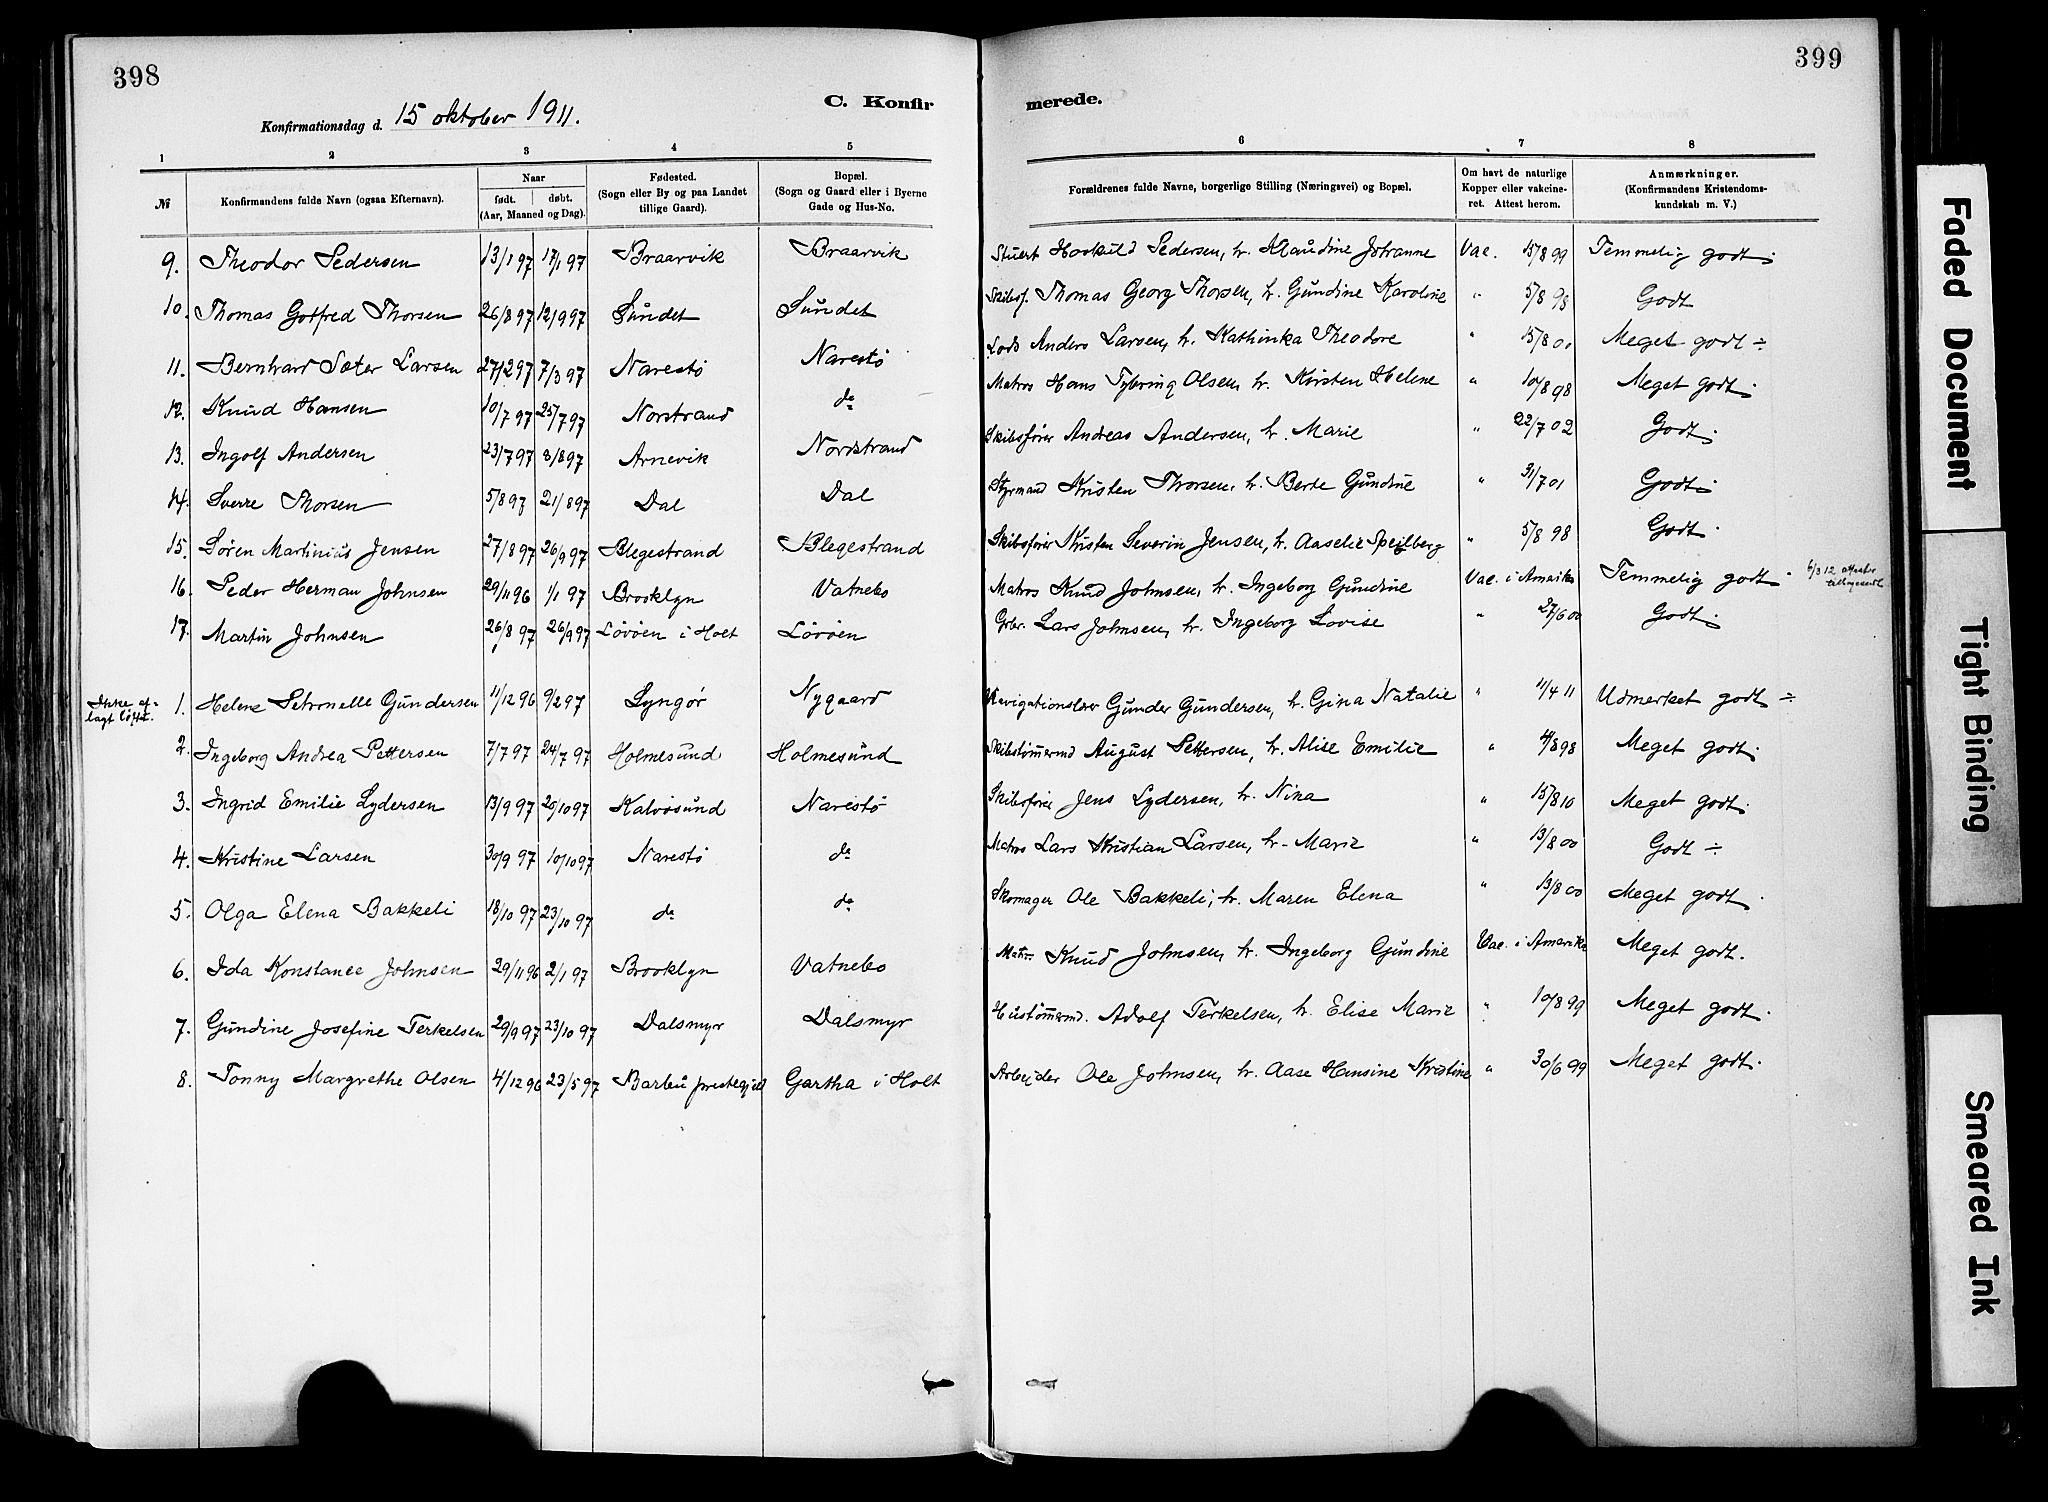 398
399
Konfirmationsdag d. 15 oktober 1911.
C. Konfir
merede.
1 2 3 4 5 6 7 8
№ Konfirmandens fulde Navn (ogsaa Efternavn). Naar født. døbt. (Aar, Maaned og Dag). Fødested. (Sogn eller By og paa Landet tillige Gaard). Bopæl. (Sogn og Gaard eller i Byerne Gade og Hus-No. Forældrenes fulde Navne, borgerlige Stilling (Næringsvei) og Bopæl. Om havt de naturlige Kopper eller vakcineret. Attest herom. Anmærkninger. (Konfirmandens Kristendomskundskab m. V.)
9. Theodor Pedersen 13/1 97 17/1 97 Braarvik Braarvik Stuert Pedersen, h. Klaudine Johanne Vac. 15/8 99 Temmelig godt.
10. Thomas Gotfred Thorsen 26/8 97 12/9 97 Sundet Sundet Skibsf. Thomas Georg Thorsen, h. Gundine Karoline " 5/8 98 Godt
11. Bernhard Sæter Larsen 27/2 97 7/3 97 Narestø Narestø Lods Anders Larsen, h. Kathinka Theodore " 15/8 00 Meget godt ÷
12. Knud Hansen 10/7 97 25/7 97 Norstrand do Matros Hans Tybring Olsen, h. Kirsten Helene " 10/8 98 Meget godt.
13. Ingolf Andersen 23/7 97 8/8 97 Arnevik Nordstrand Skibsfører Andreas Andersen, h. Marie " 22/7 02 Godt.
14. Sverre Thorsen 5/8 97 21/8 97 Dal Dal Styrmand Kristen Thorsen, h. Berte Gundine " 3/7 01 Godt.
15. Søren Martinius Jensen 27/8 97 26/9 97 Blegestrand Blegestrand Skibsfører Kristen Severin Jensen, h. Aaselie Speilberg " 5/8 98 Godt.
16. Peder Herman Johnsen 29/11 96 1/1 97 Brooklyn Vatnebo Matros Knud Johnsen, h. Ingeborg Gundine Vac. i Amerika Temmelig godt. 6/3 12
17. Martin Johnsen 26/8 97 26/9 97 Løvøen i Holt Løvøen Grbr. Lars Johnsen, h. Ingeborg Lovise " 27/6 00 Godt.
Ikke aflagt løfte.
1. Helene Petronelle Gundersen 11/12 96 9/2 97 Lyngør Nygaard Navigationslærer Gunder Gundersen, h. Gina Natalie " 11/4 11 Udmerket godt ÷
2. Ingeborg Andrea Pettersen 7/7 97 24/7 97 Holmesund Holmesund Skibstømmermd August Pettersen, h. Alise Emilie " 4/8 98 Meget godt.
3. Ingrid Emilie Lydersen 13/9 97 20/10 97 Kalvøsund Narestø Skibsfører Jens Lydersen, h. Nina " 15/8 10 Meget godt.
4. Kristine Larsen 30/9 97 10/10 97 Narestø do Matros Lars Kristian Larsen, h. Marie " 13/8 00 Godt ÷
5. Olga Elena Bakkeli 18/10 97 23/10 97 do do Skomager Ole Bakkeli, h. Maren Elena " 13/8 00 Meget godt.
6. Ida Konstance Johnsen 29/11 96 2/1 97 Brooklyn Vatnebo Matros Knud Johnsen, h. Ingeborg Gundine Vac. i Amerika Meget godt.
7. Gundine Josefine Terkelsen 29/9 97 23/10 97 Dalsmyr Dalsmyr Hustømmermd. Adolf Terkelsen, h. Elise Marie " 10/8 99 Meget godt.
8. Tonny Margrethe Olsen 4/12 96 23/5 97 Barbu prestegjeld Gartha i Holt Arbejder Ole Johnsen, h. Aase Hansine Kristine " 30/6 99 Meget godt.
Faded Document
Tight Binding
Smeared Ink